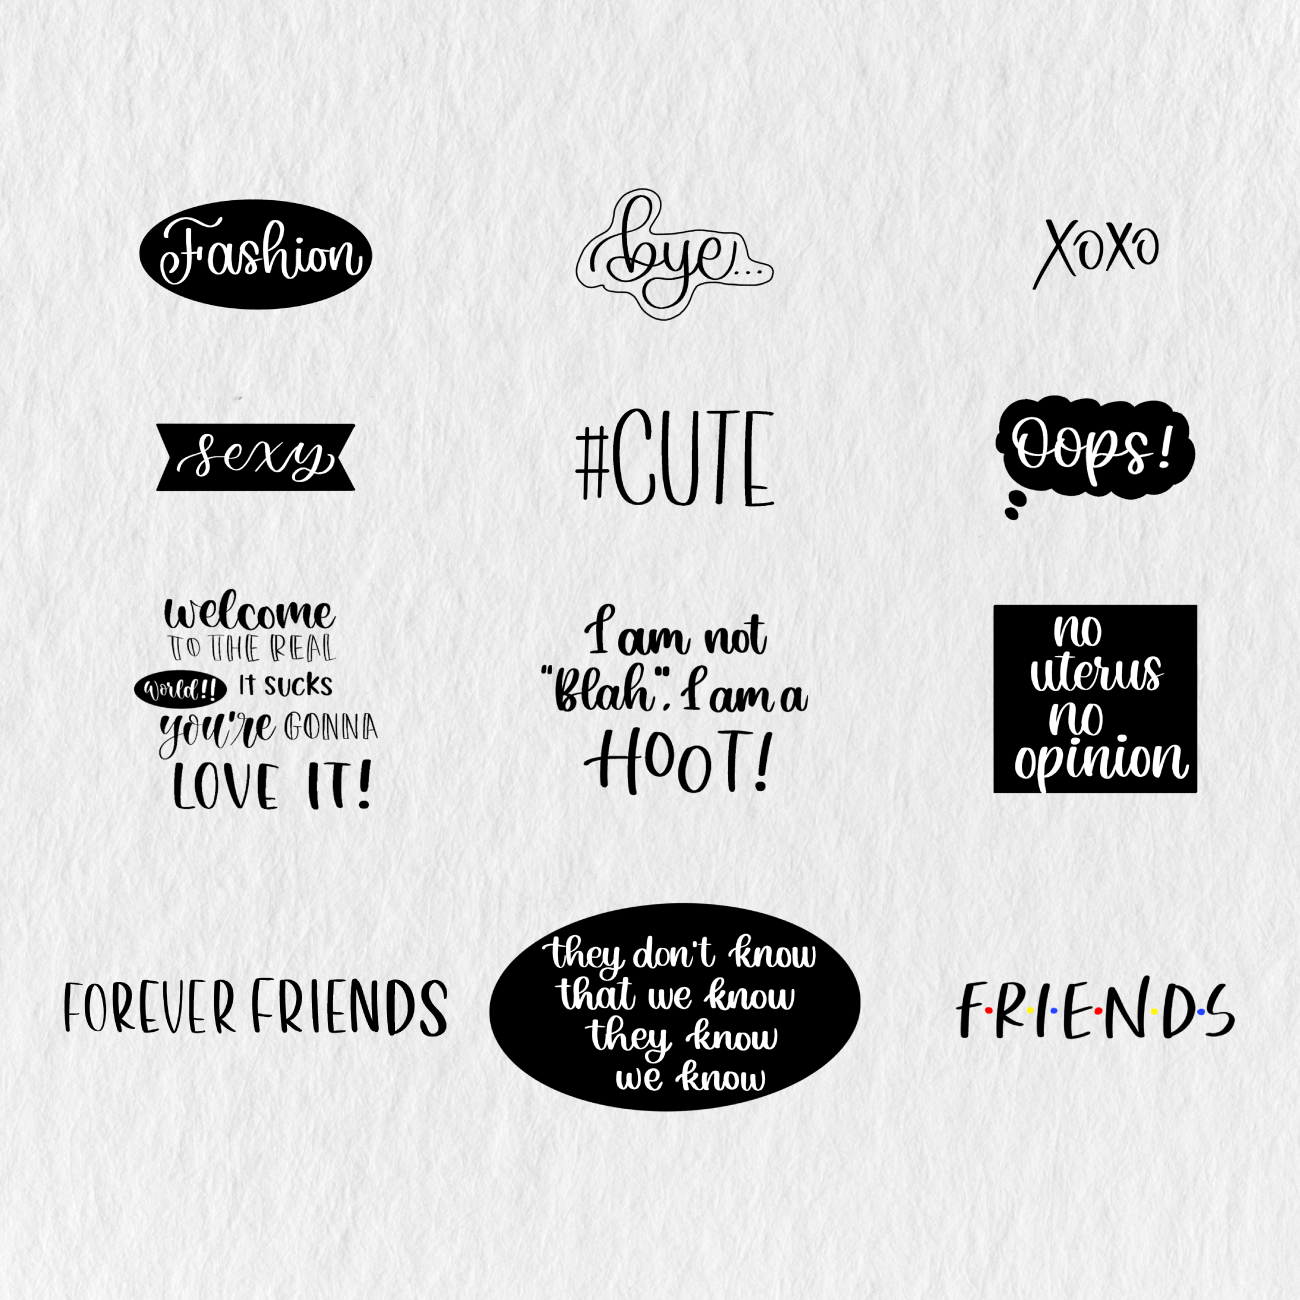 Fashion
bye...
XOXO
sexy
#CUTE
Oops!
welcome
TO THE REAL
World!! IT SUCKS
you're GONNA
LOVE IT!
I am not
"Blah". I am a
HOOT!
no
uterus
no
opinion
FOREVER FRIENDS
they don't know
that we know
they know
we know
F•R•I•E•N•D•S